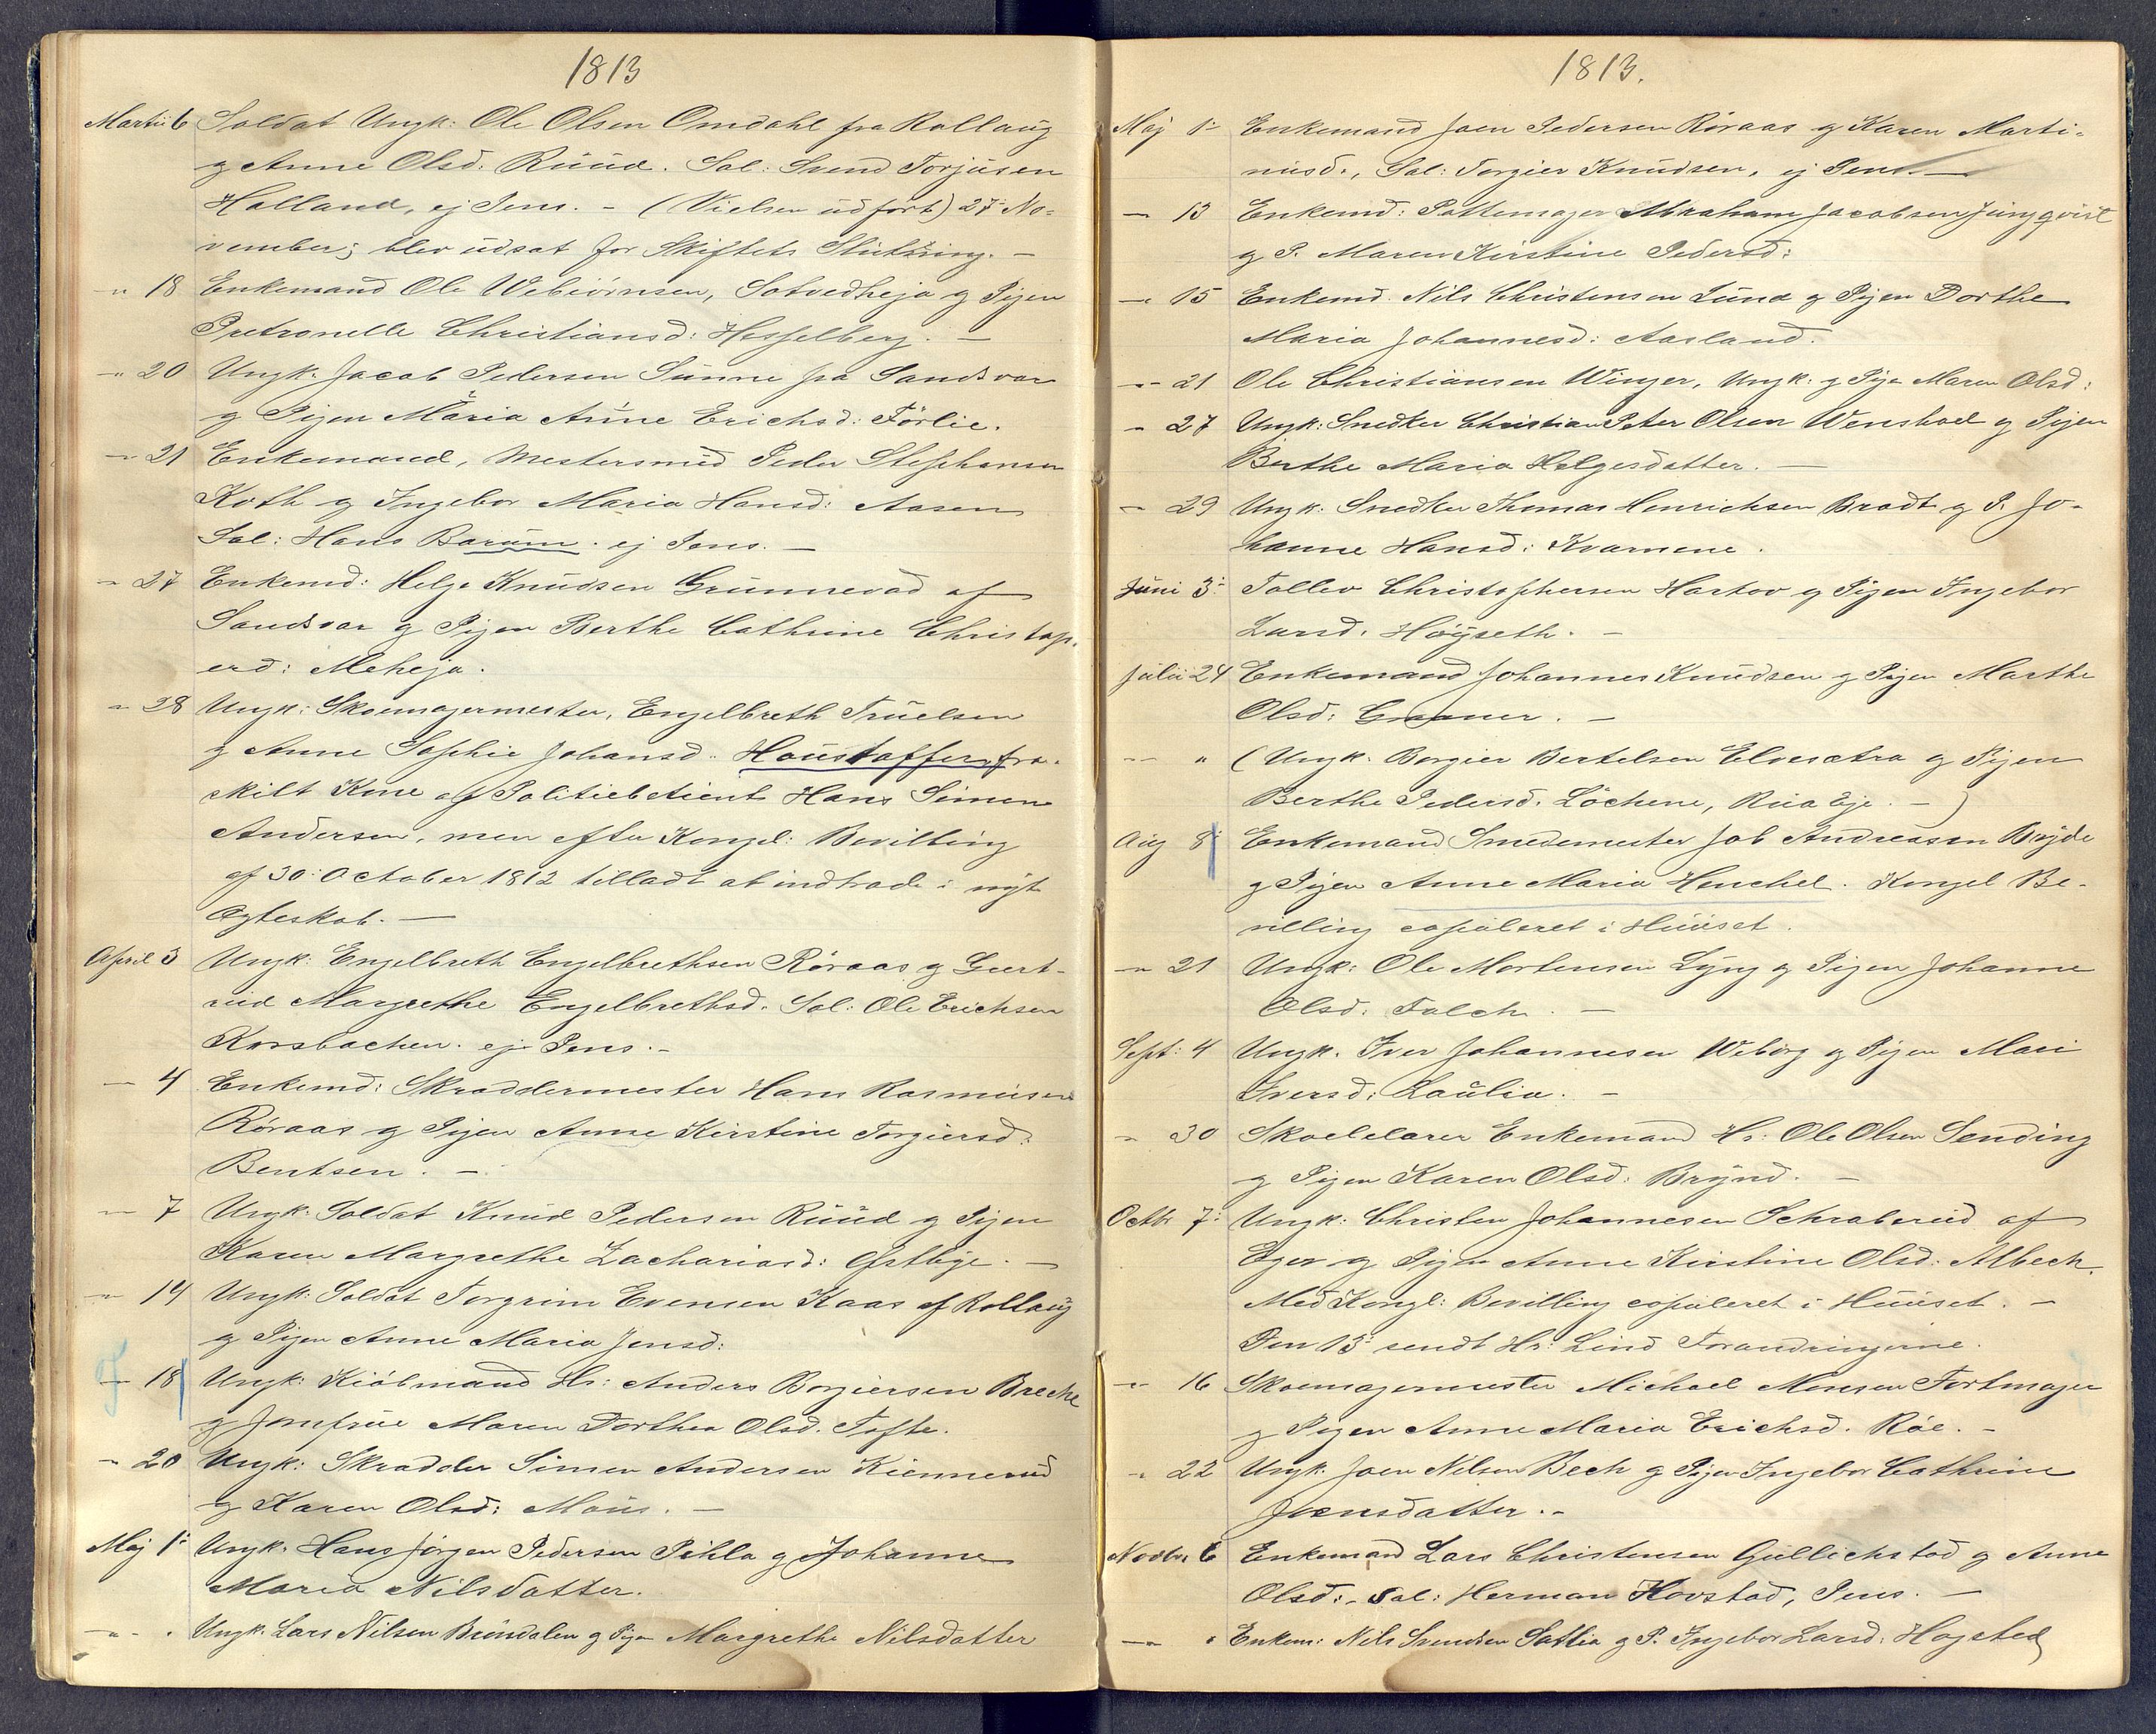 1813
Martii 6 Soldat Ungk: Ole Olsen Omdahl fra Rollaug
og Anne Olsd: Ruud. Sal: Svend Torjusen
Holland, ej Pens. - (Vielsen udført) 27: No-
vember; blev udsat for Skiftets Slutning. -
-"- 18 Enkemand Ole Webiörnsen, Sotvedheja og Pigen
Pretronelle Christiansd: Hesselberg. -
-"- 20 Ungk: Jacob Pedersen Sunne fra Sandsvær
og Pigen Maria Anne Erichsd: Förlie.
-"- 21 Enkemand, Mestersmed Peder Stephensen
Koth og Ingebor Maria Hansd: Aasen
Sal: Hans Barum. ej Pens. -
-"- 27 Enkemd: Helge Knudsen Grunnevad af
Sandsvær og Pigen Berthe Cathrine Christop-
ersd: Meheja.
-"- 28 Ungk: Skoemagermester, Engelbreth Truelsen
og Anne Sophie Johansd: Haustaffer, fra-
skilt Kone af Politiebetient Hans Simen
Andersen, men efter Kongel: Bevilling
af 30: October 1812 tilladt at indtrade i nyt
Ægteskab. -
April 3 Ungk: Engelbreth Engelbrethsen Röraas og Giert-
rud Margrethe Engelbrethsd. Sal: Ole Erichsen
Korsbachen. ej Pens. -
-"- 4 Enkemd: Skraddermester Hans Rasmusen
Röraas og Pigen Anne Kirstine Torgiersd:
Bentsen. -
-"- 7 Ungk: Soldat Knud Pedersen Ruud og Pigen
Karen Margrethe Zachariasd: Østbye. -
-"- 14 Ungk: Soldat Torgrim Evensen Kaas af Rollaug
og Pigen Anne Maria Jensd:
-"- 18 Ungk: Kiöbmand Hr: Anders Borgiersen Breche
og Jomfrue Maren Dorthea Olsd. Tofte.
-"- 20 Ungk: Skradder Simen Andersen Kiennerud
og Karen Olsd: Moüs. -
Maj 1: Ungk: Hans Jörgen Pedersen Pihla og Johanne
Maria Nilsdatter.
-"- " Ungk. Lars Nilsen Brundalen og Pigen Margrethe Nilsdatter
1813.
Maj 1: Enkemand Joen Pedersen Röraas og Karen Marti-
nusd., Sal: Torgier Knudsen, ej Pens. -
-"- 13 Enkemd: Pottemager Abraham Jacobsen Jungqvist
og P. Maren Kirstine Pedersd:
-"- 15 Enkemd. Nils Christensen Lund og Pigen Dorthe
Maria Johannesd: Aasland.
-"- 21 Ole Christiansen Winger, Ungk: og Pige Maren Olsd:
-"- 27 Ungk: Snedker Christian Peter Olsen Wenstoel og Pigen
Berthe Maria Helgesdatter. -
-"- 29 Ungk: Snedker Thomas Henrichsen Bradt og P. Jo-
hanne Hansd: Kvarnene.
Juni 3: Tollev Christophersen Hartov og Pigen Ingebor
Larsd: Höÿseth. -
Julii 24 Enkemand Johannes Knudsen og Pigen Marthe
Olsd: Graner. -
-"- " (Ungk. Borgier Bertelsen Elvesætra og Pigen
Berthe Pedersd. Löchene, Rua Eje. -)
Aug 8: Enkemand Smedemester Job Andreasen Brÿde
og Pigen Anne Maria Henchel. Kongel Be-
villing copuleret i Huuset.
-"- 21 Ungk: Ole Mortensen Lyng og Pigen Johanne
Olsd. Falch. -
Sept: 4 Ungk. Iver Johannesen Wiborg og Pigen Mari
Iversd: Laulia. -
-"- 30 Skoelelærer Enkemand Hr: Ole Olsen Sending
og Pigen Karen Olsd: Brÿnd. -
Octbr 7: Ungk: Christen Johannesen Schraberud af
Eger og Pigen Anne Kirstine Olsd: Albech.
Med Kongl: Bevilling copuleret i Huuset. -
Den 13: sendt Hr: Lind Forandringerne.
-"- 16 Skoemagermester Michael Monsen Fortmager
og Pigen Anne Maria Erichsd. Röe. -
-"- 22 Ungk. Joen Nilsen Bech og Pigen Ingebor Cathrine
Joensdatter. -
Novbr. 6 Enkemand Lars Christensen Gullichstad og Anne
Olsd:, Sal: Herman Hovstad, Pens. -
-"- " Enkem: Nils Svendsen Satlia og P. Ingebor Larsd: Hagsted